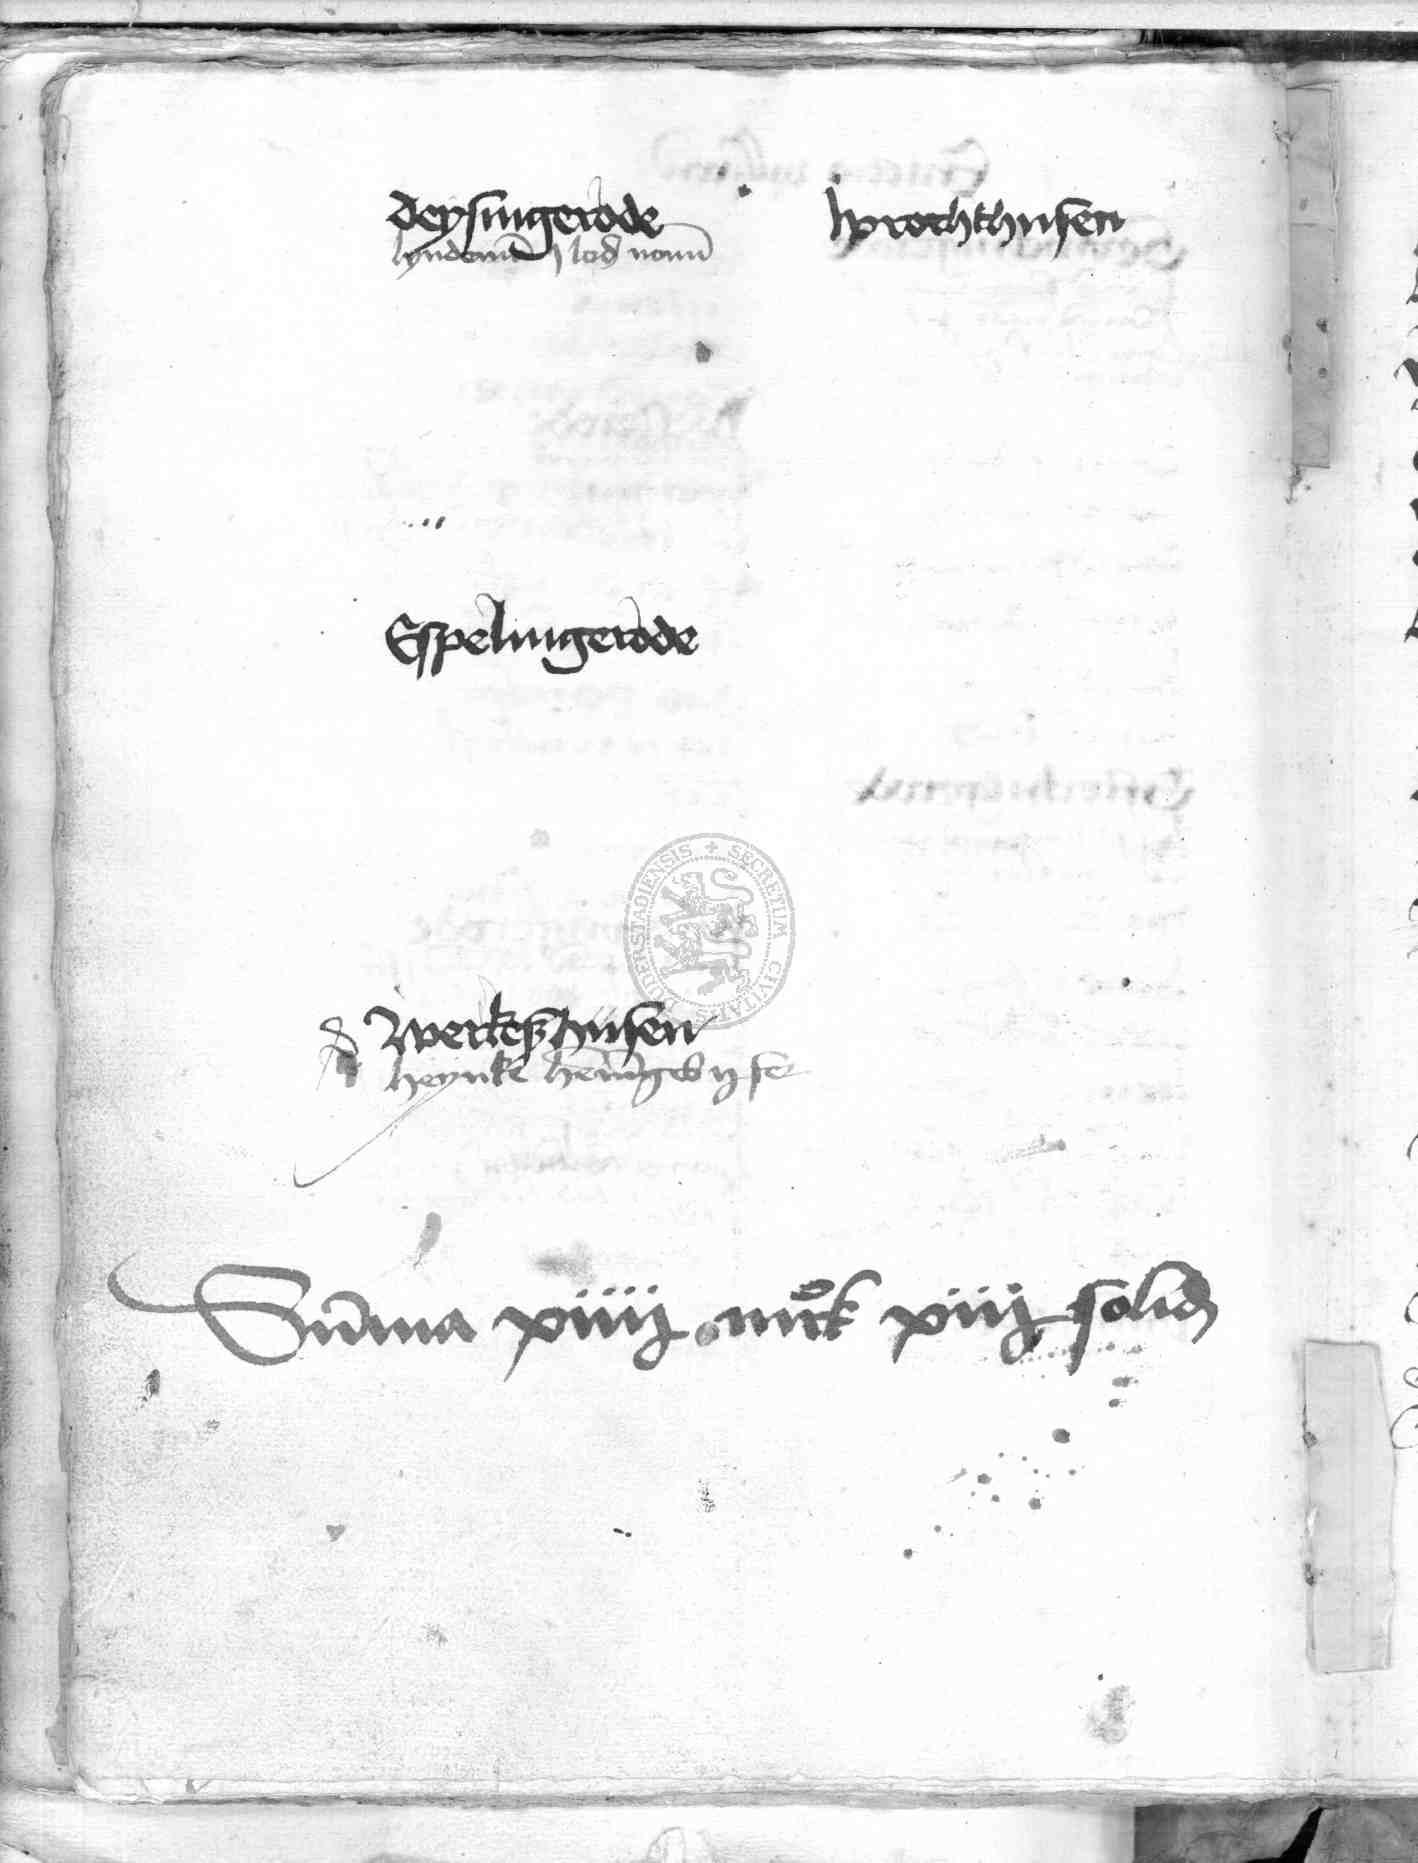 Deysingerode
lyndeman j lod nouu
Brochthusen
Espelingerode
Werkeshusen
heynke hennges ij fer
Summa xiiij mrk xiij solid
SECRETUM CIVITATIS DUDERSTADIENSIS